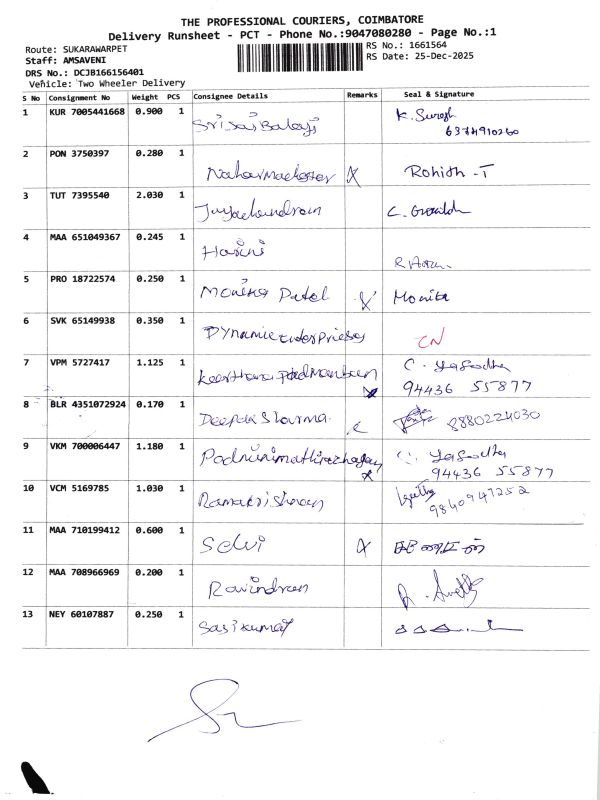 THE PROFESSIONAL COURIERS, COIMBATORE
Delivery Runsheet - PCT - Phone No.:9047080280 - Page No.:1
Route: SUKARAWARPET
RS No.: 1661564
Staff: AMSAVENI
RS Date: 25-Dec-2025
DRS No.: DCJB166156401
Vehicle: Two Wheeler Delivery
S No Consignment No Weight PCS Consignee Details Remarks Seal & Signature
1 KUR 7005441668 0.900 1 Sri Sai Balaji K. Suresh
6374910260
2 PON 3750397 0.280 1 Rohith - T
3 TUT 7395540 2.030 1 Jayachandran
4 MAA 651049367 0.245 1 Harini
5 PRO 18722574 0.250 1 Monika Patel Monika
6 SVK 65149938 0.350 1 Dynamic Enterprises CN
7 VPM 5727417 1.125 1 Keerthana Padmanaban C. Yasodha
94436 55877
8 BLR 4351072924 0.170 1 Deepak Sharma 8880224030
9 VKM 700006447 1.180 1 C. Yasodha
94436 55877
10 VCM 5169785 1.030 1 Ramakrishnan
9840947252
11 MAA 710199412 0.600 1 Selvi
12 MAA 708966969 0.200 1 Ravindran
13 NEY 60107887 0.250 1 Sasikumar